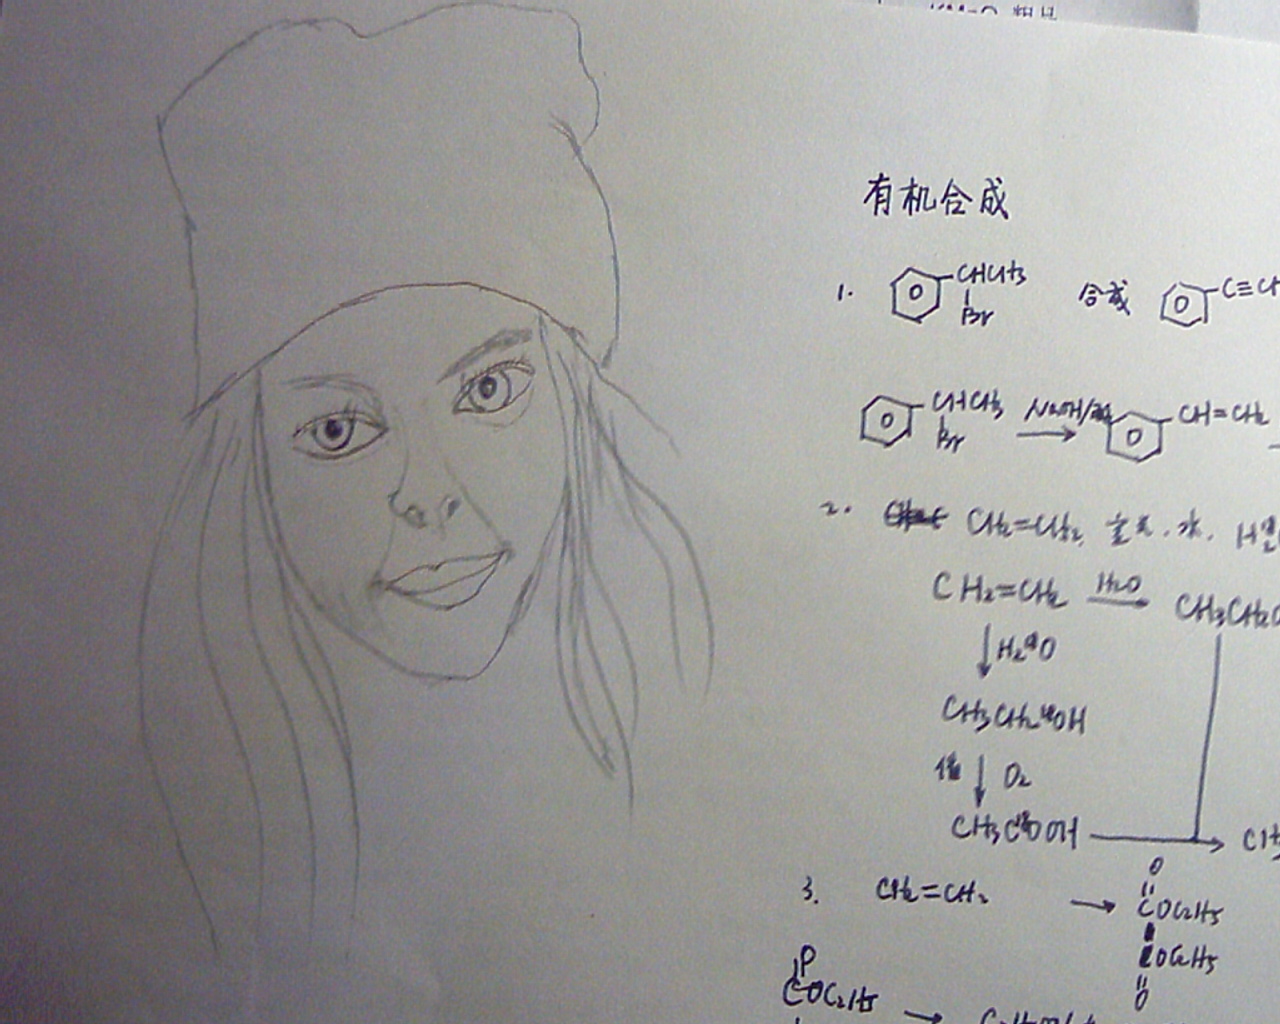 有机合成
1. CHCH3 合成 C≡CH
Br
CHCH3 NaOH/醇 CH=CH2
Br
2. CH2=CH2, 空气, 水, H2
CH2=CH2 H2O CH3CH2O
H2¹⁸O
CH3CH2¹⁸OH
催 O2
CH3C¹⁸OOH CH3
O
3. CH2=CH2 COC2H5
COC2H5
O
COC2H5